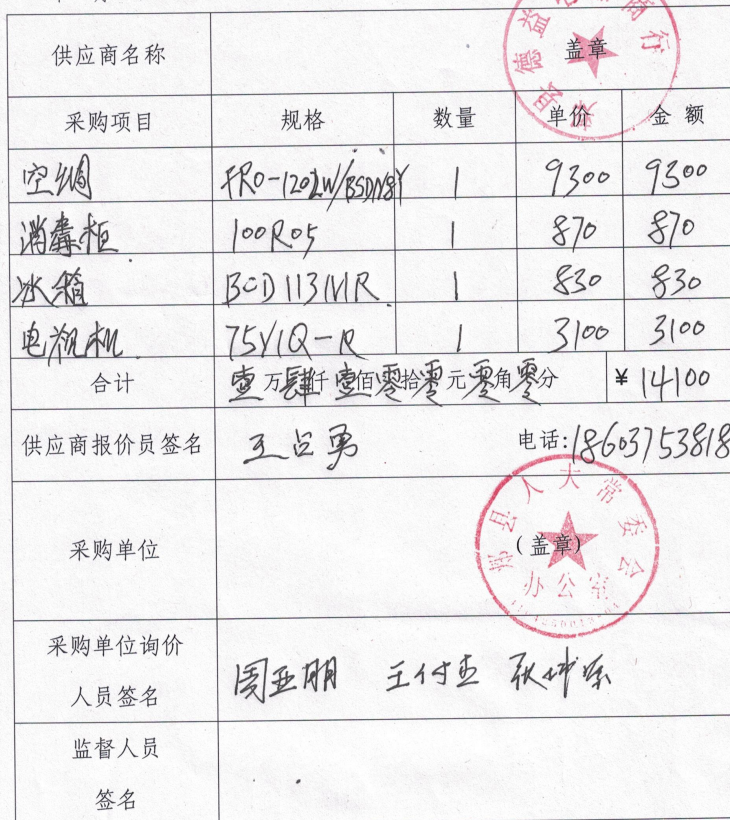 供应商名称 盖章
德益 商行
采购项目 规格 数量 单价 金额
空调 FR0-120LW/BSDN8Y 1 9300 9300
消毒柜 100R05 1 870 870
冰箱 BCD113M1R 1 830 830
电视机 75V1Q-R 1 3100 3100
合计 壹万肆仟壹佰零拾零元零角零分 ¥14100
供应商报价员签名 王占勇 电话:18603753818
采购单位 (盖章)
郏县人大常委会
办公室
采购单位询价 周亚朋 王付杰
人员签名
监督人员
签名